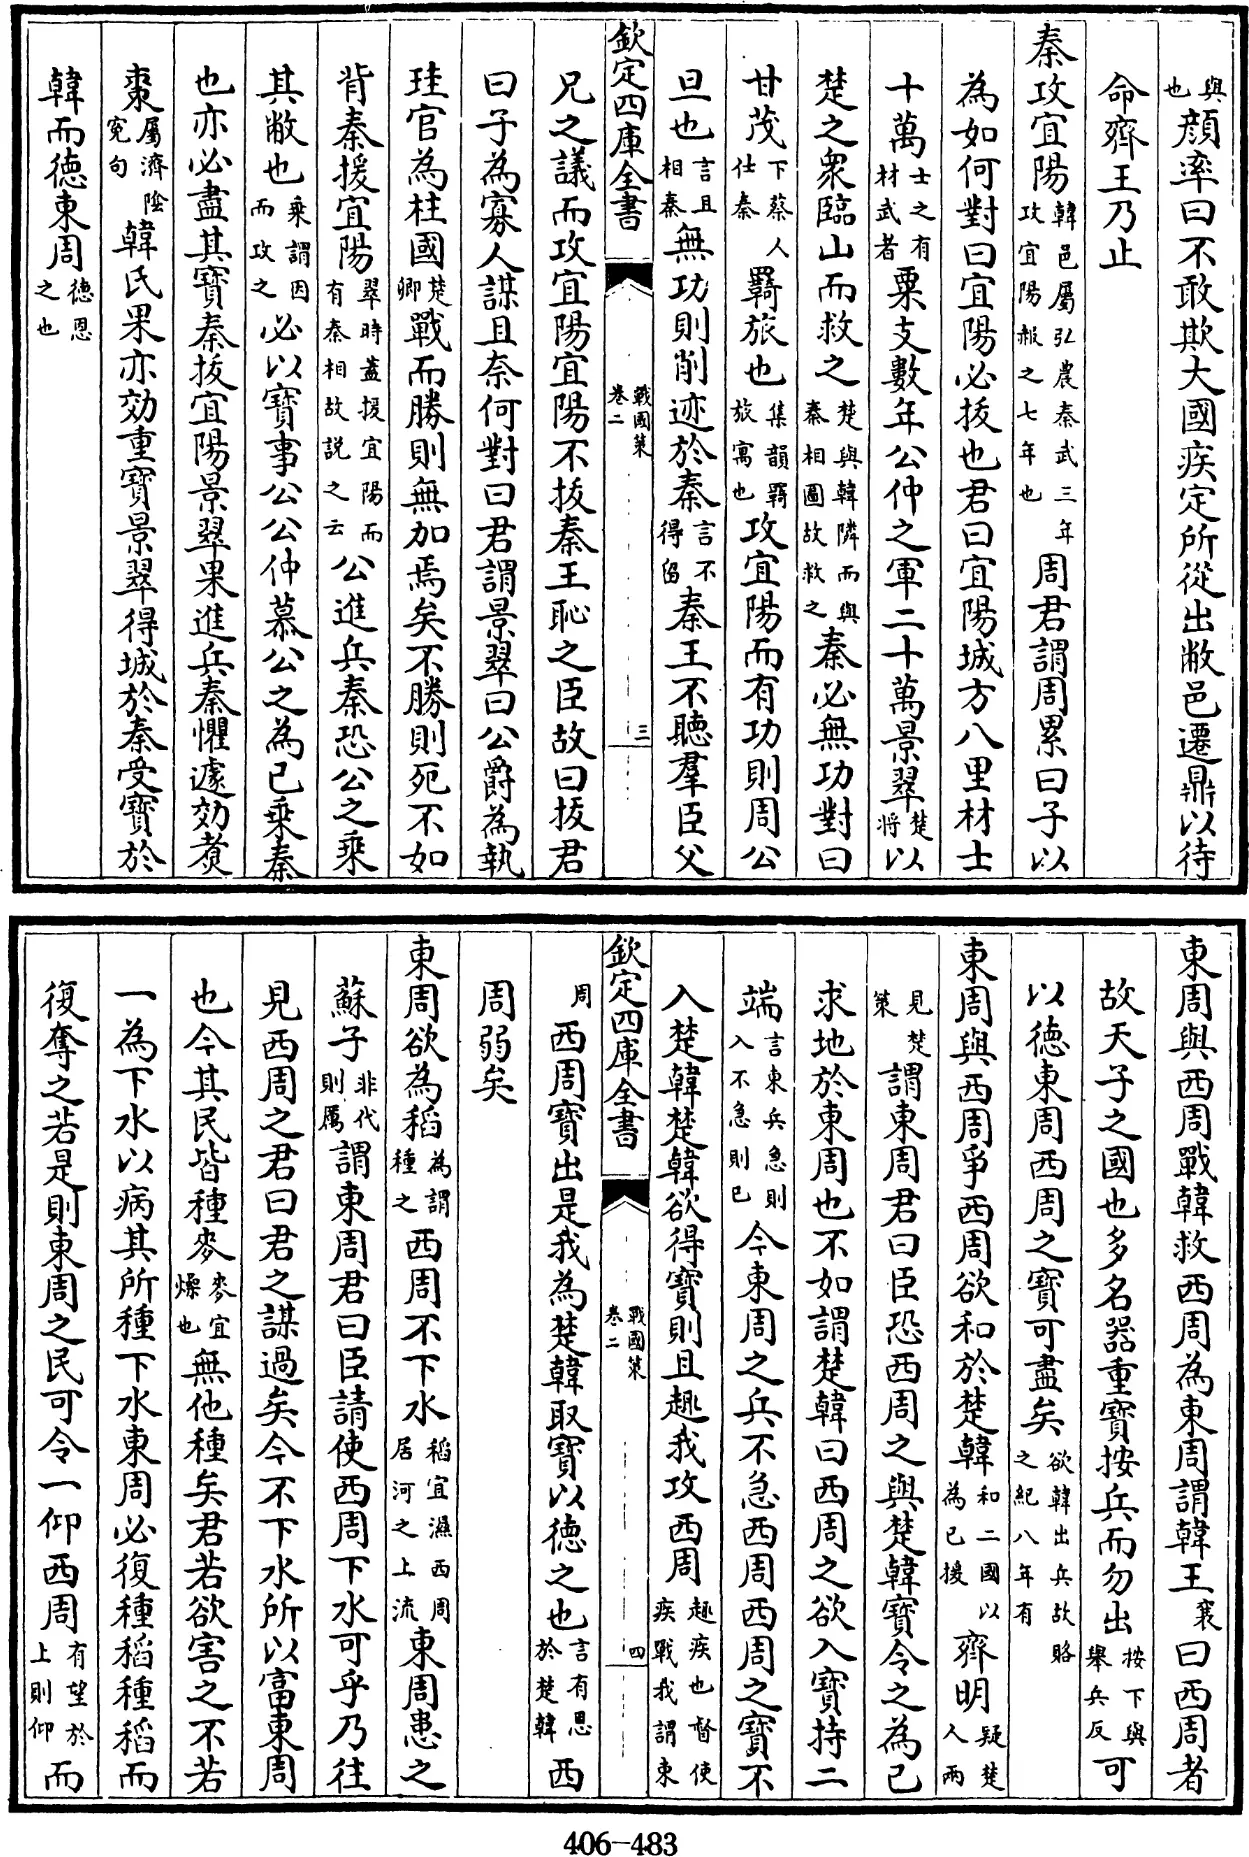 與也顔率曰不敢欺大國疾定所從出敝邑遷鼎以待
命齊王乃止
秦攻宜陽韓邑屬弘農秦武三年攻宜陽赧之七年也周君謂周累曰子以
為如何對曰宜陽必拔也君曰宜陽城方八里材士
十萬士之有材武者粟支數年公仲之軍二十萬景翠楚將以
楚之衆臨山而救之楚與韓隣而與秦相圖故救之秦必無功對曰
甘茂下蔡人仕秦羇旅也集韻羇旅寓也攻宜陽而有功則周公
旦也言且相秦無功則削迹於秦言不得留秦王不聽羣臣父
欽定四庫全書
戰國策
卷二
三
兄之議而攻宜陽宜陽不拔秦王恥之臣故曰拔君
曰子為寡人謀且奈何對曰君謂景翠曰公爵為執
珪官為柱國楚卿戰而勝則無加焉矣不勝則死不如
背秦援宜陽翠時蓋援宜陽而有秦相故說之云公進兵秦恐公之乘
其敝也乘謂因而攻之必以寶事公公仲慕公之為己乘秦
也亦必盡其寶秦拔宜陽景翠果進兵秦懼遽効煑
棗屬濟陰寃句韓氏果亦効重寶景翠得城於秦受寶於
韓而德東周德恩之也
東周與西周戰韓救西周為東周謂韓王襄曰西周者
故天子之國也多名器重寶按兵而勿出按下與舉兵反可
以德東周西周之寶可盡矣欲韓出兵故賂之紀八年有
東周與西周爭西周欲和於楚韓和二國以為己援齊明疑楚人兩
見楚策謂東周君曰臣恐西周之與楚韓寶令之為己
求地於東周也不如謂楚韓曰西周之欲入寶持二
端言東兵急則入不急則已今東周之兵不急西周西周之寶不
入楚韓楚韓欲得寶則且趣我攻西周趣疾也督使疾戰我謂東
欽定四庫全書
戰國策
卷二
四
周西周寶出是我為楚韓取寶以德之也言有恩於楚韓西
周弱矣
東周欲為稻為謂種之西周不下水稻宜濕西周居河之上流東周患之
蘇子非代則厲謂東周君曰臣請使西周下水可乎乃往
見西周之君曰君之謀過矣今不下水所以富東周
也今其民皆種麥麥宜燥也無他種矣君若欲害之不若
一為下水以病其所種下水東周必復種稻種稻而
復奪之若是則東周之民可令一仰西周有望於上則仰而
406-483